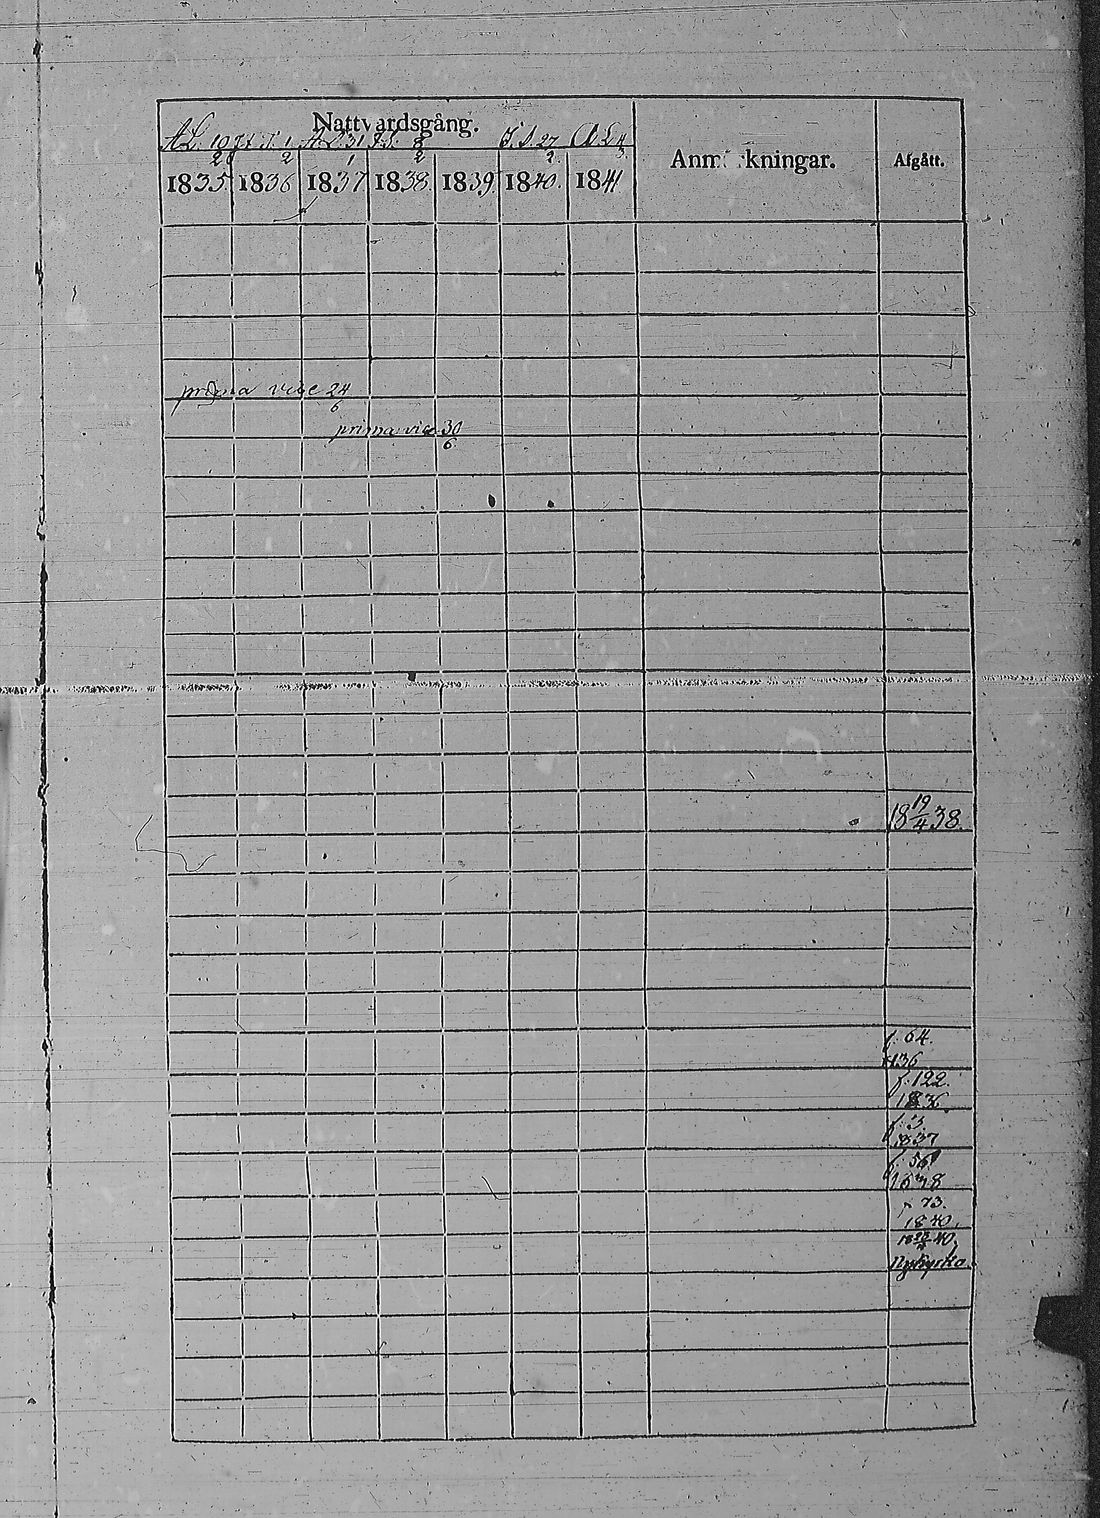 Nattvardsgång.
A.L. 10/2 J.S. 1/2 A.L. 31/1 J.S. 8/2 J.S. 27/2 A.L.
Anmärkningar. Afgått.
1835 1836 1837 1838 1839 1840. 1841
prima vice 24/6
prima vice 30/6
18 19/4 38.
f. 64.
1836
f. 122.
1836.
f. 3.
1837
f. 56
1838
f. 73.
1840.
40.
Nykyrka.